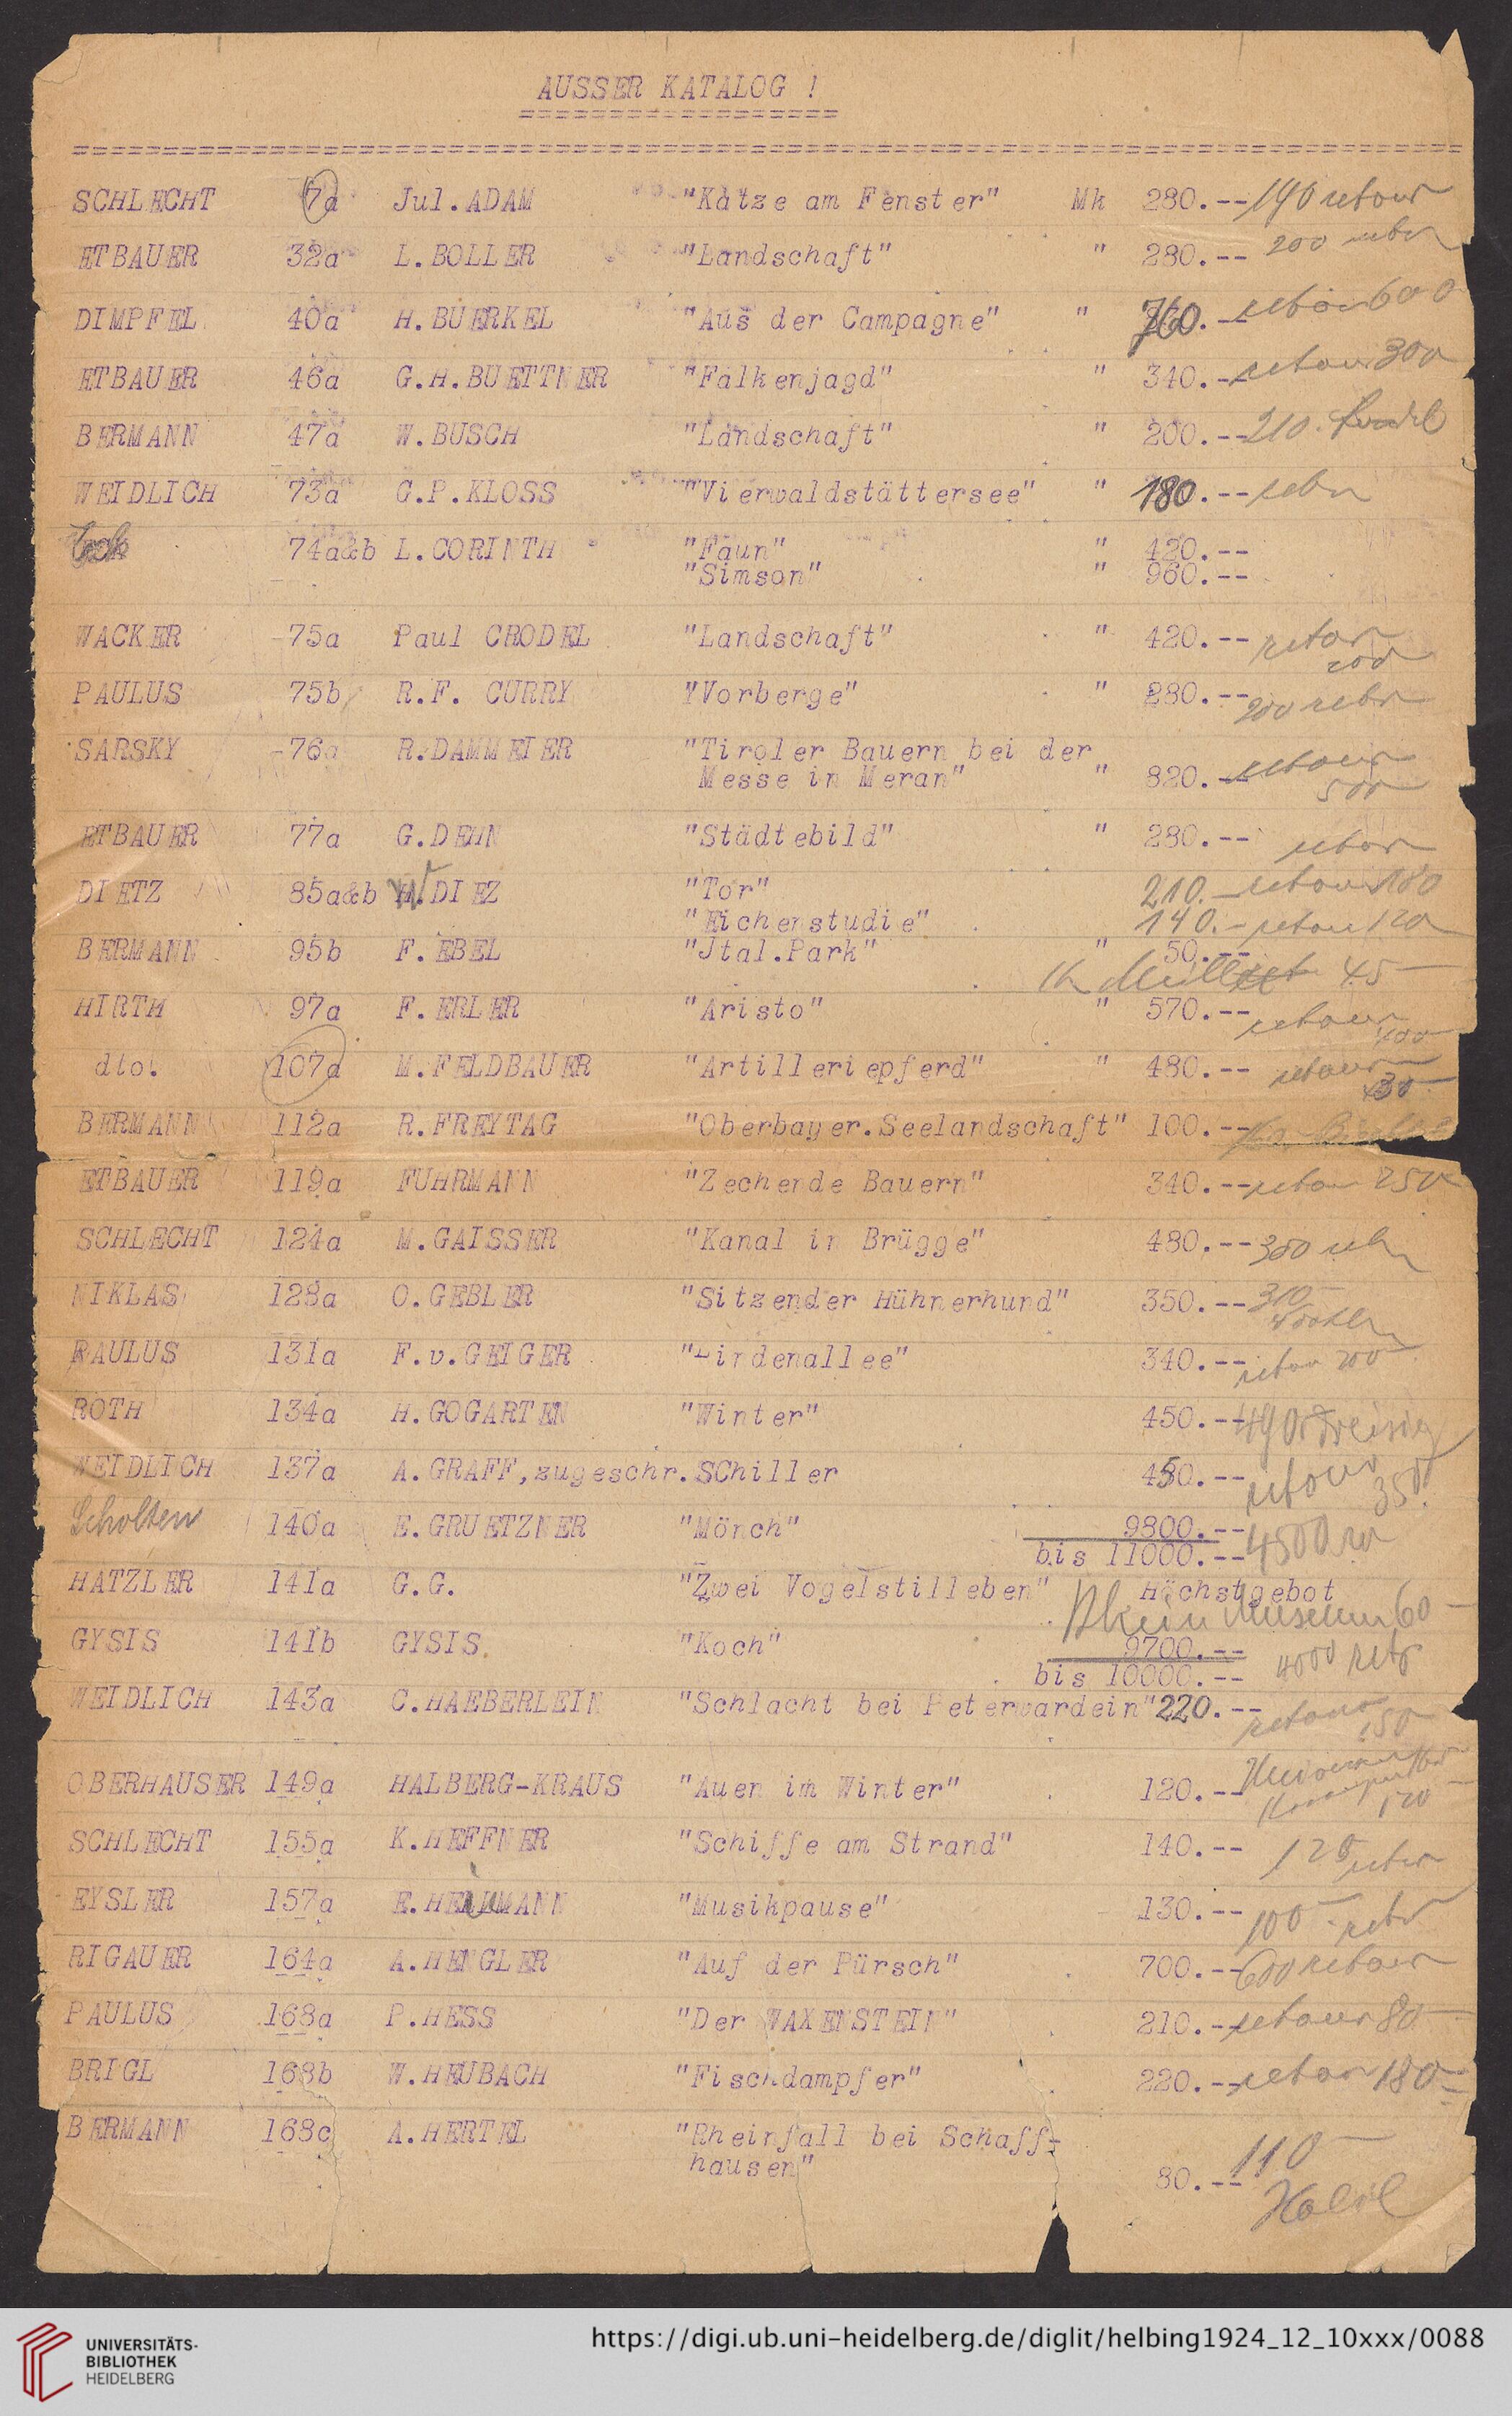 AUSSER KATALOG !
SCHLECHT 7a Jul.ADAM "Katze am Fenster" Mk 280.-- 190 retour
ETBAUER 32a L.BOLLER "Landschaft" " 280.-- 200
DIMPFEL 40a H.BUERKEL "Aus der Campagne" " 760.-- retour 600
ETBAUER 46a G.H.BUETTNER "Falkenjagd" " 340.-- retour 300
BERMANN 47a W.BUSCH "Landschaft" " 200.-- 210.
WEIDLICH 73a G.P.KLOSS "Vierwaldstättersee" " 180.--
74a&b L.CORINTH "Faun" " 420.--
"Simson" " 960.--
WACKER 75a Paul CRODEL "Landschaft" " 420.-- retour
200
PAULUS 75b R.F. CURRY "Vorberge" " 280.-- 200 retour
SARSKY 76a R.DAMMEIER "Tiroler Bauern bei der
Messe in Meran" " 820.-- retour
500
ETBAUER 77a G.DEHN "Städtebild" " 280.-- retour
DIETZ 85a&b W.DIEZ "Tor" 210.- retour 180
"Eichenstudie" 140.- retour 120
BERMANN 95b F.EBEL "Jtal.Park" " 50.--
45
HIRTH 97a F.ERLER "Aristo" " 570.-- retour
400
dto. 107a M.FELDBAUER "Artilleriepferd" " 480.-- retour
BERMANN 112a R.FREYTAG "Oberbayer.Seelandschaft" 100.--
ETBAUER 119a FUHRMANN "Zechende Bauern" 340.-- retour 250
SCHLECHT 124a M.GAISSER "Kanal in Brügge" 480.-- 350
NIKLAS 128a O.GEBLER "Sitzender Hühnerhund" 350.-- 310
PAULUS 131a F.v.GEIGER "Lindenallee" 340.-- retour 200
ROTH 134a H.GOGARTEN "Winter" 450.-- 490
WEIDLICH 137a A.GRAFF,zugeschr.SChiller 450.-- retour
350
Scholten 140a E.GRUETZNER "Mönch" 9800.--
bis 11000.-- 4500
HATZLER 141a G.G. "Zwei Vogelstilleben" Höchstgebot
Museum 60
GYSIS 141b GYSIS "Koch" 9700.--
bis 10000.-- 4000 retr
WEIDLICH 143a C.HAEBERLEIN "Schlacht bei Peterwardein" 220.-- retour
150
OBERHAUSER 149a HALBERG-KRAUS "Auen im Winter" 120.--
120
SCHLECHT 155a K.HEFFNER "Schiffe am Strand" 140.-- 120 retour
EYSLER 157a E.HEUMANN "Musikpause" 130.-- 100 retr
RIGAUER 164a A.HENGLER "Auf der Pürsch" 700.-- 600 retour
PAULUS 168a P.HESS "Der WAXENSTEIN" 210.-- retour 80
BRIGL 168b W.HEUBACH "Fischdampfer" 220.-- retour 180
BERMANN 168c A.HERTEL "Rheinfall bei Schaff-
hausen" 80.-- 110
UNIVERSITÄTS-
BIBLIOTHEK
HEIDELBERG
https://digi.ub.uni-heidelberg.de/diglit/helbing1924_12_10xxx/0088